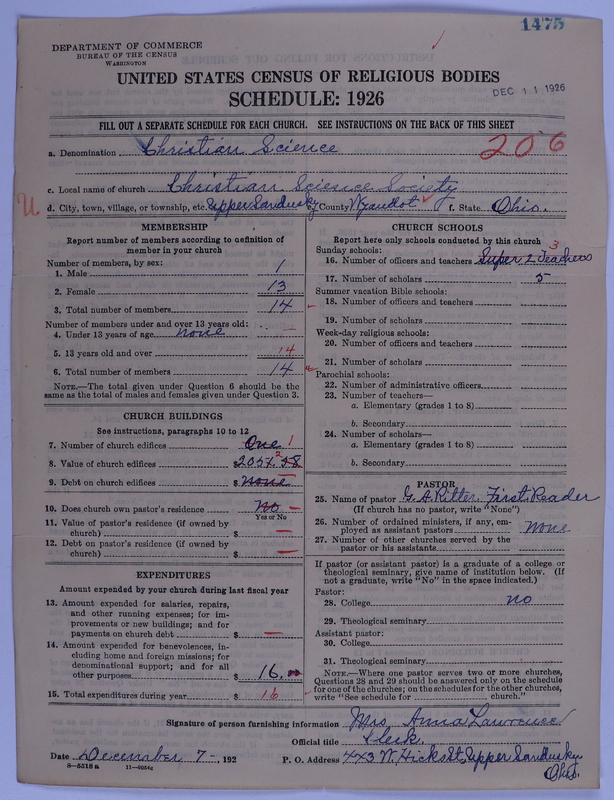 1475
DEPARTMENT OF COMMERCE
BUREAU OF THE CENSUS
WASHINGTON
UNITED STATES CENSUS OF RELIGIOUS BODIES
SCHEDULE: 1926
DEC 11 1926
FILL OUT A SEPARATE SCHEDULE FOR EACH CHURCH. SEE INSTRUCTIONS ON THE BACK OF THIS SHEET
a. Denomination Christian Science
206
c. Local name of church Christian Science Society
d. City, town, village, or township, etc. Upper Sandusky e. County Wyandot f. State Ohio.
MEMBERSHIP
Report number of members according to definition of
member in your church
Number of members, by sex:
1. Male 1
2. Female 13
3. Total number of members 14
Number of members under and over 13 years old:
4. Under 13 years of age none
5. 13 years old and over 14
6. Total number of members 14
NOTE.—The total given under Question 6 should be the
same as the total of males and females given under Question 3.
CHURCH BUILDINGS
See instructions, paragraphs 10 to 12
7. Number of church edifices One 1
8. Value of church edifices $2057.58
9. Debt on church edifices $ None
10. Does church own pastor's residence No
Yes or No
11. Value of pastor's residence (if owned by
church) $ —
12. Debt on pastor's residence (if owned by
church) $ —
EXPENDITURES
Amount expended by your church during last fiscal year
13. Amount expended for salaries, repairs,
and other running expenses; for im-
provements or new buildings; and for
payments on church debt $ —
14. Amount expended for benevolences, in-
cluding home and foreign missions; for
denominational support; and for all
other purposes $ 16.00
15. Total expenditures during year $ 16
CHURCH SCHOOLS
Report here only schools conducted by this church
Sunday schools:
16. Number of officers and teachers Super 2 Teachers 3
17. Number of scholars 5
Summer vacation Bible schools:
18. Number of officers and teachers
19. Number of scholars
Week-day religious schools:
20. Number of officers and teachers
21. Number of scholars
Parochial schools:
22. Number of administrative officers
23. Number of teachers—
a. Elementary (grades 1 to 8)
b. Secondary
24. Number of scholars—
a. Elementary (grades 1 to 8)
b. Secondary
PASTOR
25. Name of pastor G. A. Ritter First Reader
(If church has no pastor, write "None")
26. Number of ordained ministers, if any, em-
ployed as assistant pastors None
27. Number of other churches served by the
pastor or his assistants
If pastor (or assistant pastor) is a graduate of a college or
theological seminary, give name of institution below. (If
not a graduate, write "No" in the space indicated.)
Pastor:
28. College no
29. Theological seminary
Assistant pastor:
30. College
31. Theological seminary
NOTE.—Where one pastor serves two or more churches,
Questions 28 and 29 should be answered only on the schedule
for one of the churches; on the schedules for the other churches,
write "See schedule for church."
Signature of person furnishing information Mrs. Anna Lawrence
Official title Clerk.
Date December 7-, 192 P. O. Address 443 W. Hicks St, Upper Sandusky
Ohio.
8—5518a 11—9054c